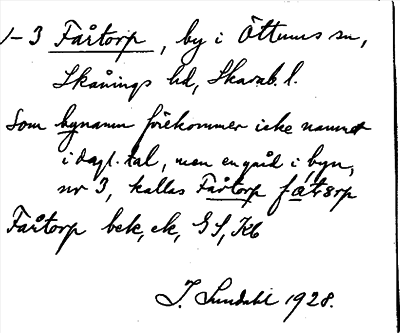 1-3 Fårtorp, by i Öttums sn,
Skånings hd, Skarab. l.
Som bynamn förekommer icke namnet
i dagl. tal, men en gård i byn,
nr 3, kallas Fårtorp fåtɔrp
Fårtorp bek, ek, GS, Kb
J. Sundahl 1928.